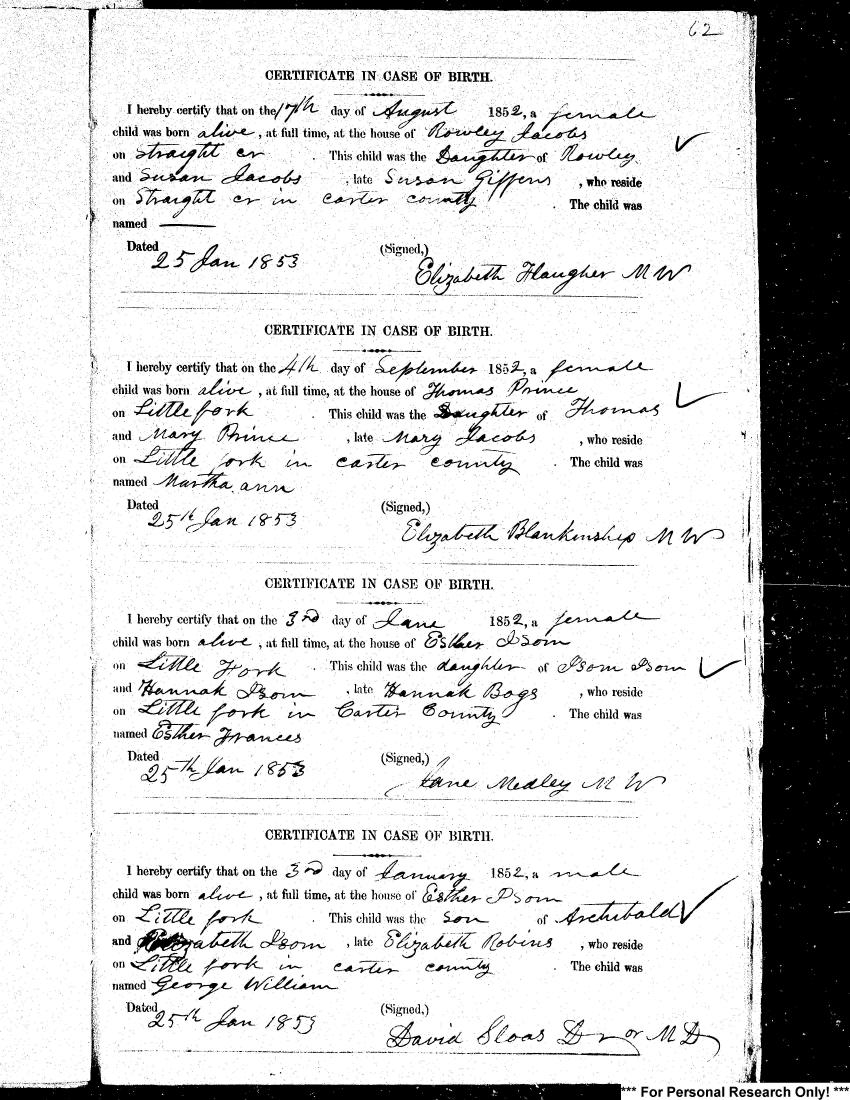 62
CERTIFICATE IN CASE OF BIRTH.
I hereby certify that on the 17th day of August 1852, a female
child was born alive, at full time, at the house of Rowley Jacobs
on Straight cr . This child was the Daughter of Rowley
and Susan Jacobs , late Susan Giffens , who reside
on Straight cr in carter county . The child was
named ——
Dated
25 Jan 1853
(Signed,)
Elizabeth Haugher M W
CERTIFICATE IN CASE OF BIRTH.
I hereby certify that on the 4th day of September 1852, a female
child was born alive, at full time, at the house of Thomas Prince
on Little fork . This child was the Daughter of Thomas
and Mary Prince , late Mary Jacobs , who reside
on Little fork in carter county . The child was
named Martha ann
Dated
25th Jan 1853
(Signed,)
Elizabeth Blankinship M W
CERTIFICATE IN CASE OF BIRTH.
I hereby certify that on the 3rd day of Jane 1852, a female
child was born alive, at full time, at the house of Esther Isom
on Little Fork . This child was the daughter of Isom Isom
and Hannah Isom , late Hannah Bogs , who reside
on Little fork in Carter County . The child was
named Esther Frances
Dated
25th Jan 1853
(Signed,)
Jane Medley M W
CERTIFICATE IN CASE OF BIRTH.
I hereby certify that on the 3rd day of January 1852, a male
child was born alive, at full time, at the house of Esther Isom
on Little fork . This child was the son of Archibald
and Elizabeth Isom , late Elizabeth Robins , who reside
on Little fork in carter county . The child was
named George William
Dated
25th Jan 1853
(Signed,)
David Sloas Dr or M D
*** For Personal Research Only! ***